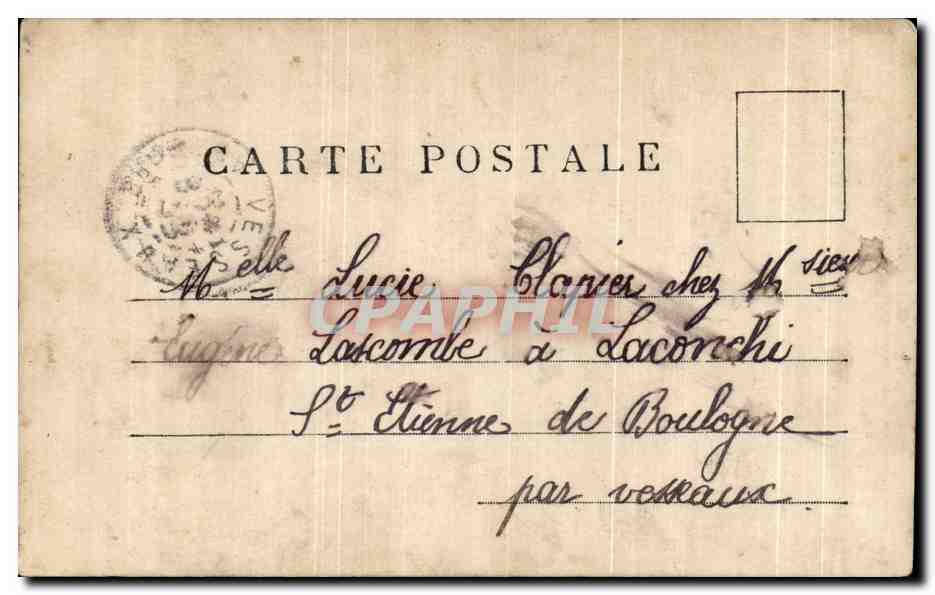 CARTE POSTALE
VESSEAUX
CPAPHIL
Melle Lucie Clapier chez Msieur
Eugène Lascombe à Laconchi
St Etienne de Boulogne
par vesseaux